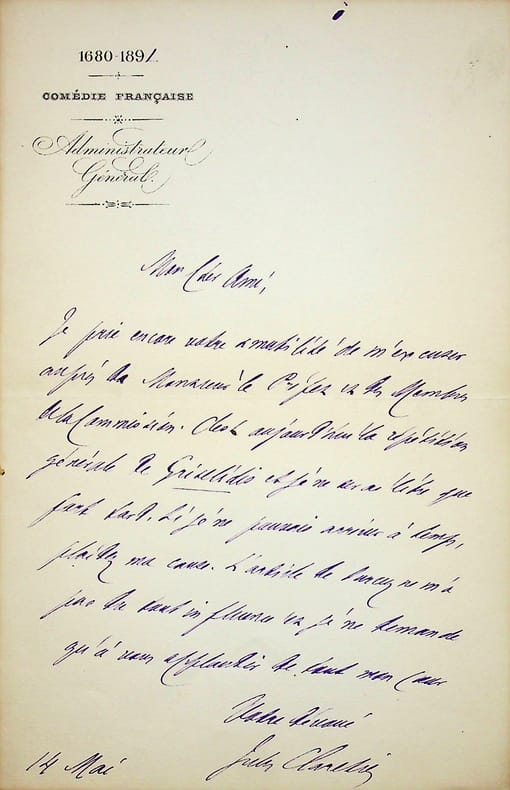 1680-1891
COMÉDIE FRANÇAISE
Administrateur
Général.
Mon cher Ami,
Je prie encore votre amabilité de m'excuser
auprès de Monsieur le Préfet et des Membres
de la Commission. C'est aujourd'hui la répétition
générale de Grisélidis et je ne serai libre que
fort tard. Si je ne pouvais arriver à temps,
plaidez ma cause. L'article de Sarcey ne m'a
pas du tout influencé et je ne demande
qu'à vous applaudir de tout mon cœur
Votre dévoué
Jules Claretie
14 Mai